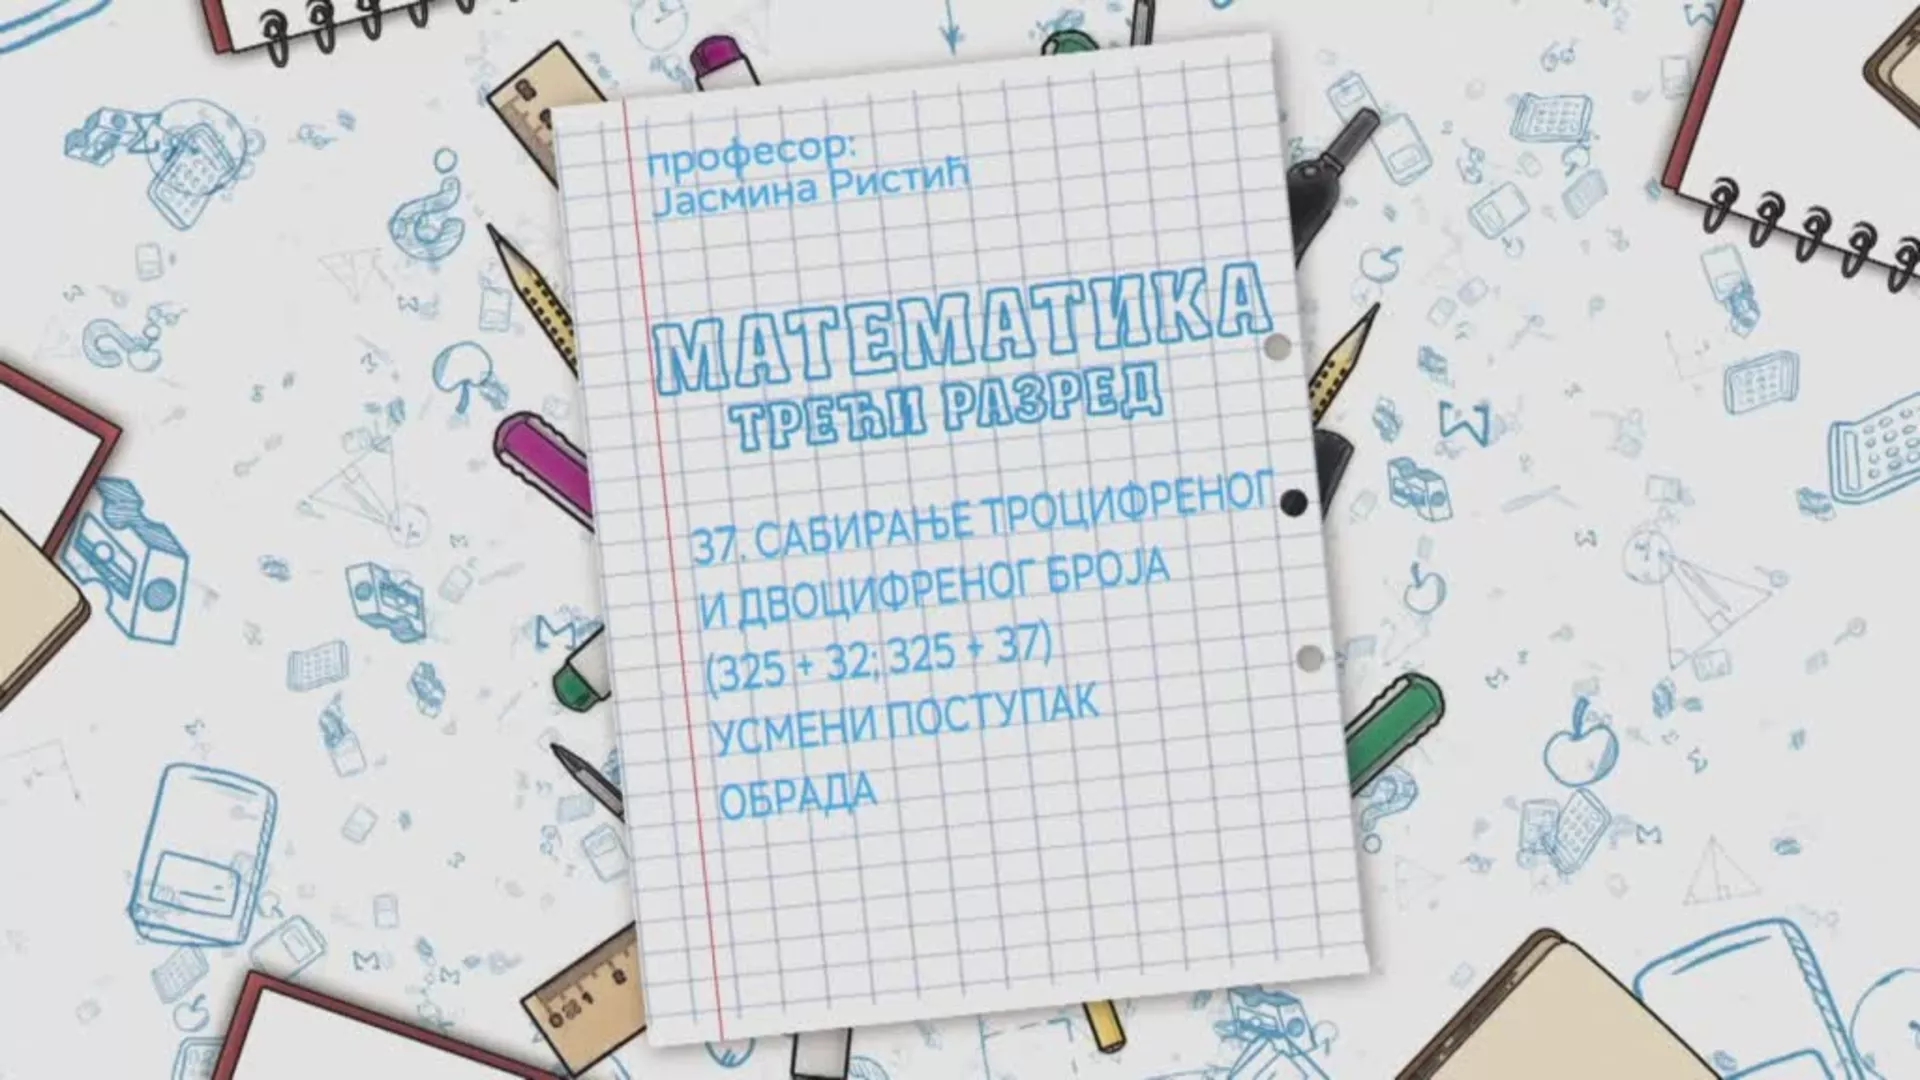 професор:
Јасмина Ристић
МАТЕМАТИКА
ТРЕЋИ РАЗРЕД
37. САБИРАЊЕ ТРОЦИФРЕНОГ
И ДВОЦИФРЕНОГ БРОЈА
(325 + 32; 325 + 37)
УСМЕНИ ПОСТУПАК
ОБРАДА